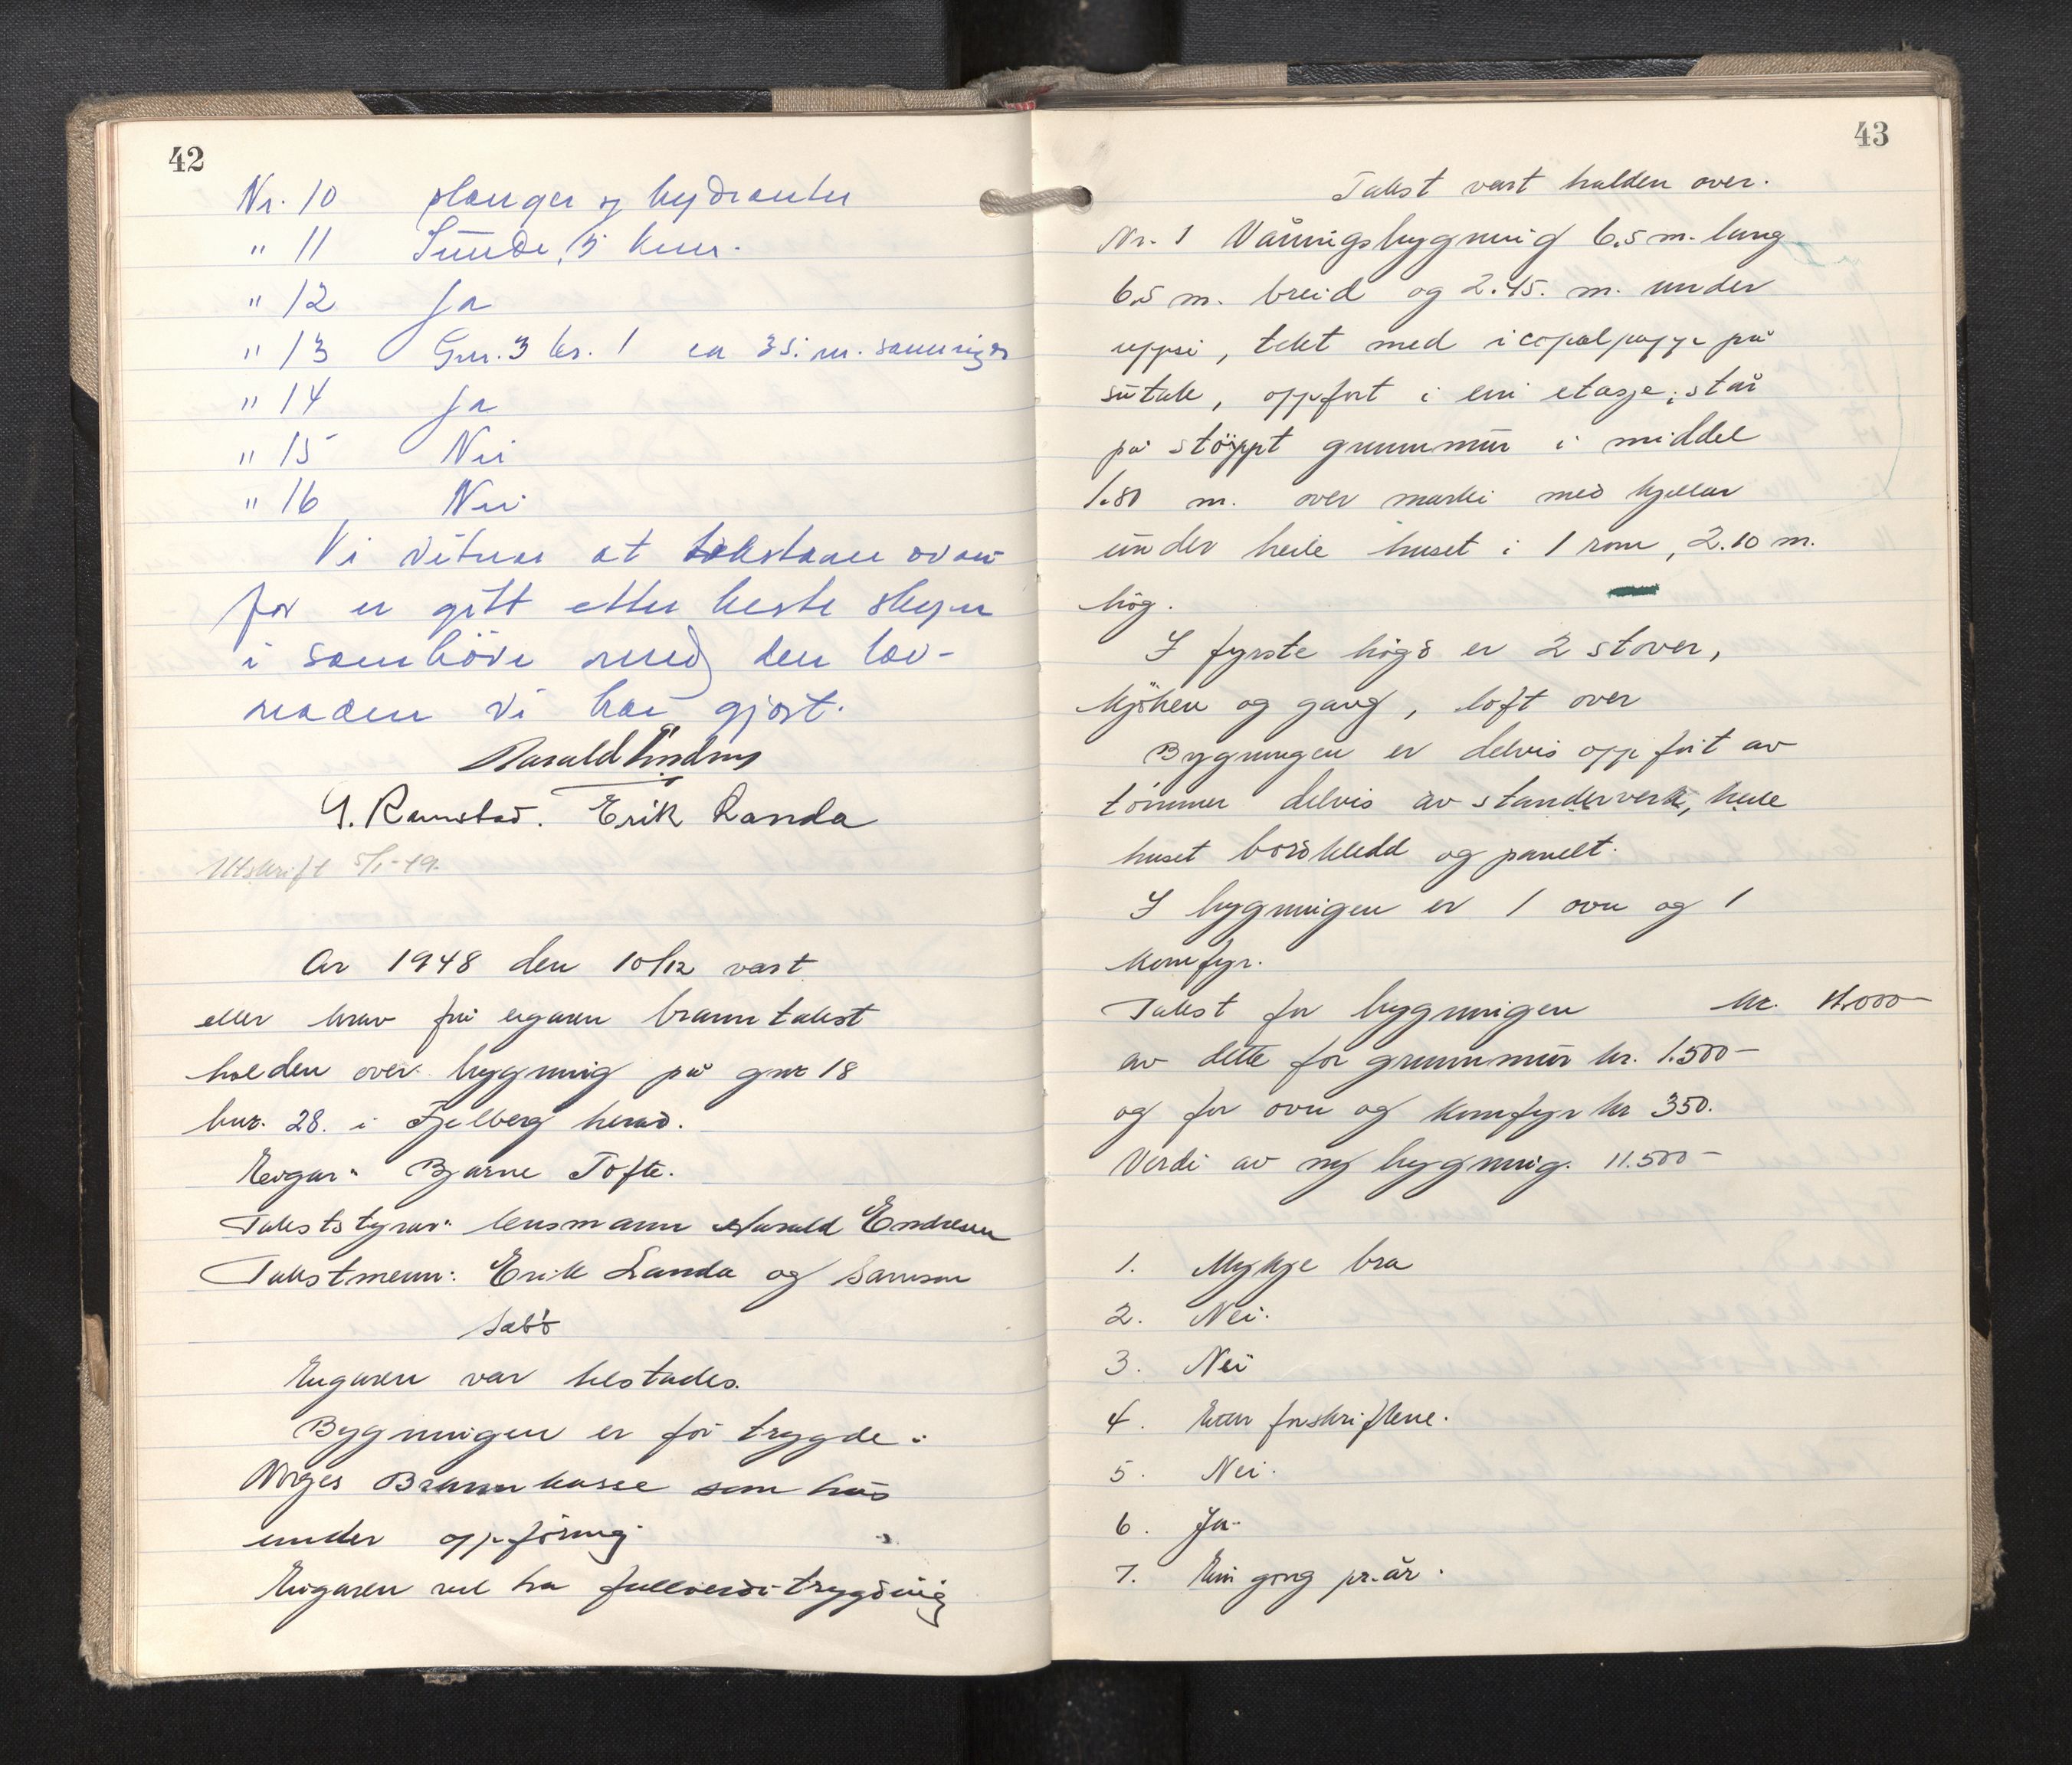 42
Nr. 10 slanger og hydranter
" 11 Sunde, 5 km.
" 12 Ja
" 13 Gnr. 3 br. 1 ca 35. m.
" 14 Ja
" 15 Nei
" 16 Nei
Vi vitnar at takstane ovan-
for er gitt etter beste skjyn
i samhöve med den lov-
naden vi har gjort.
Harald Endresen
G. Ramstad. Erik Landa
Utskrift 5/1-49.
År 1948 den 10/12 vart
etter krav frå eigaren branntakst
halden over bygning på gnr 18
bnr. 28. i Fjelberg herad.
Eigar: Bjarne Tofte.
Takststyrar: lensmann Harald Endresen
Takstmenn: Erik Landa og Samson
Sæbö
Eigaren var tilstades.
Bygningen er för trygde i
Norges Brannkasse som hus
under oppföring.
Eigaren vil ha fullverditrygding
43
Takst vart halden over.
Nr. 1 Våningsbygning 6,5 m. lang
6,5 m. breid og 2.45. m. under
uppsi, tekt med icopalpapp på
sutak, oppfört i ein etasje, står
på stöypt grunnmur i middel
1.80 m. over marki med kjellar
under heile huset i 1 rom, 2.10 m.
hög.
I fyrste högd er 2 stover,
kjöken og gang, loft over
Bygningen er delvis oppfört av
tömmer delvis av standerverk, heile
huset bordkledd og panelt.
I bygningen er 1 ovn og 1
komfyr.
Takst for bygningen kr. 11.000-
av dette for grunnmur kr. 1.500-
og for ovn og komfyr kr 350.
Verdi av ny bygning. 11.500-
1. Mykje bra
2. Nei.
3. Nei
4. Etter forskriftene.
5. Nei.
6. Ja.
7. Ein gong pr. år.